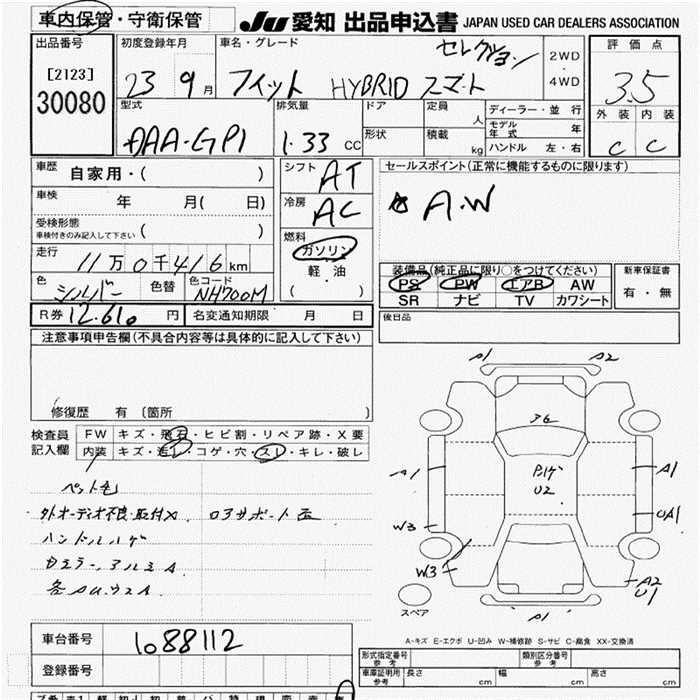 車内保管・守衛保管
JU 愛知 出品申込書 JAPAN USED CAR DEALERS ASSOCIATION
出品番号 [2123] 30080
初度登録年月 23 9月
車名・グレード フィット HYBRID スマートセレクション
2WD・4WD
評価点 3.5
外装 内装
C C
型式 DAA-GP1
排気量 1.33 CC
ドア 形状
定員 人
積載 kg
ディーラー・並行
モデル年式 年
ハンドル 左・右
車歴 自家用・( )
車検 年 月( 日)
受検形態 車検付きのみ記入して下さい ( )
走行 11万0千416km
色 シルバー 色替 色コード NH700M
シフト AT
冷房 AC
燃料 ガソリン 軽油 ( )
セールスポイント(正常に機能するものに限ります)
A.W
装備品(純正品に限り○をつけてください)
PS PW エアB AW
SR ナビ TV カワシート
新車保証書 有・無
R券 12.610円 名変通知期限 月 日
後日品
注意事項申告欄(不具合内容等は具体的に記入して下さい)
修復歴 有 〔箇所 〕
検査員記入欄
FW キズ・飛石・ヒビ割・リペア跡・X要
内装 キズ・汚レ・コゲ・穴・スレ・キレ・破レ
ペット毛
外オーディオ不良・取付X ロアサポート歪
ハンドルハゲ
カメラー、アルミA
各AU.ウスA
A1 A2
36
A1 Pハゲ U2 A1
W3 UA1
W3 A2 U1
スペア A1
A-キズ E-エクボ U-凹み W-補修跡 S-サビ C-腐食 XX-交換済
車台番号 1088112
登録番号
形式指定番号 参考 類別区分番号 参考
車庫証明用 参考 長さ cm 幅 cm 高さ cm